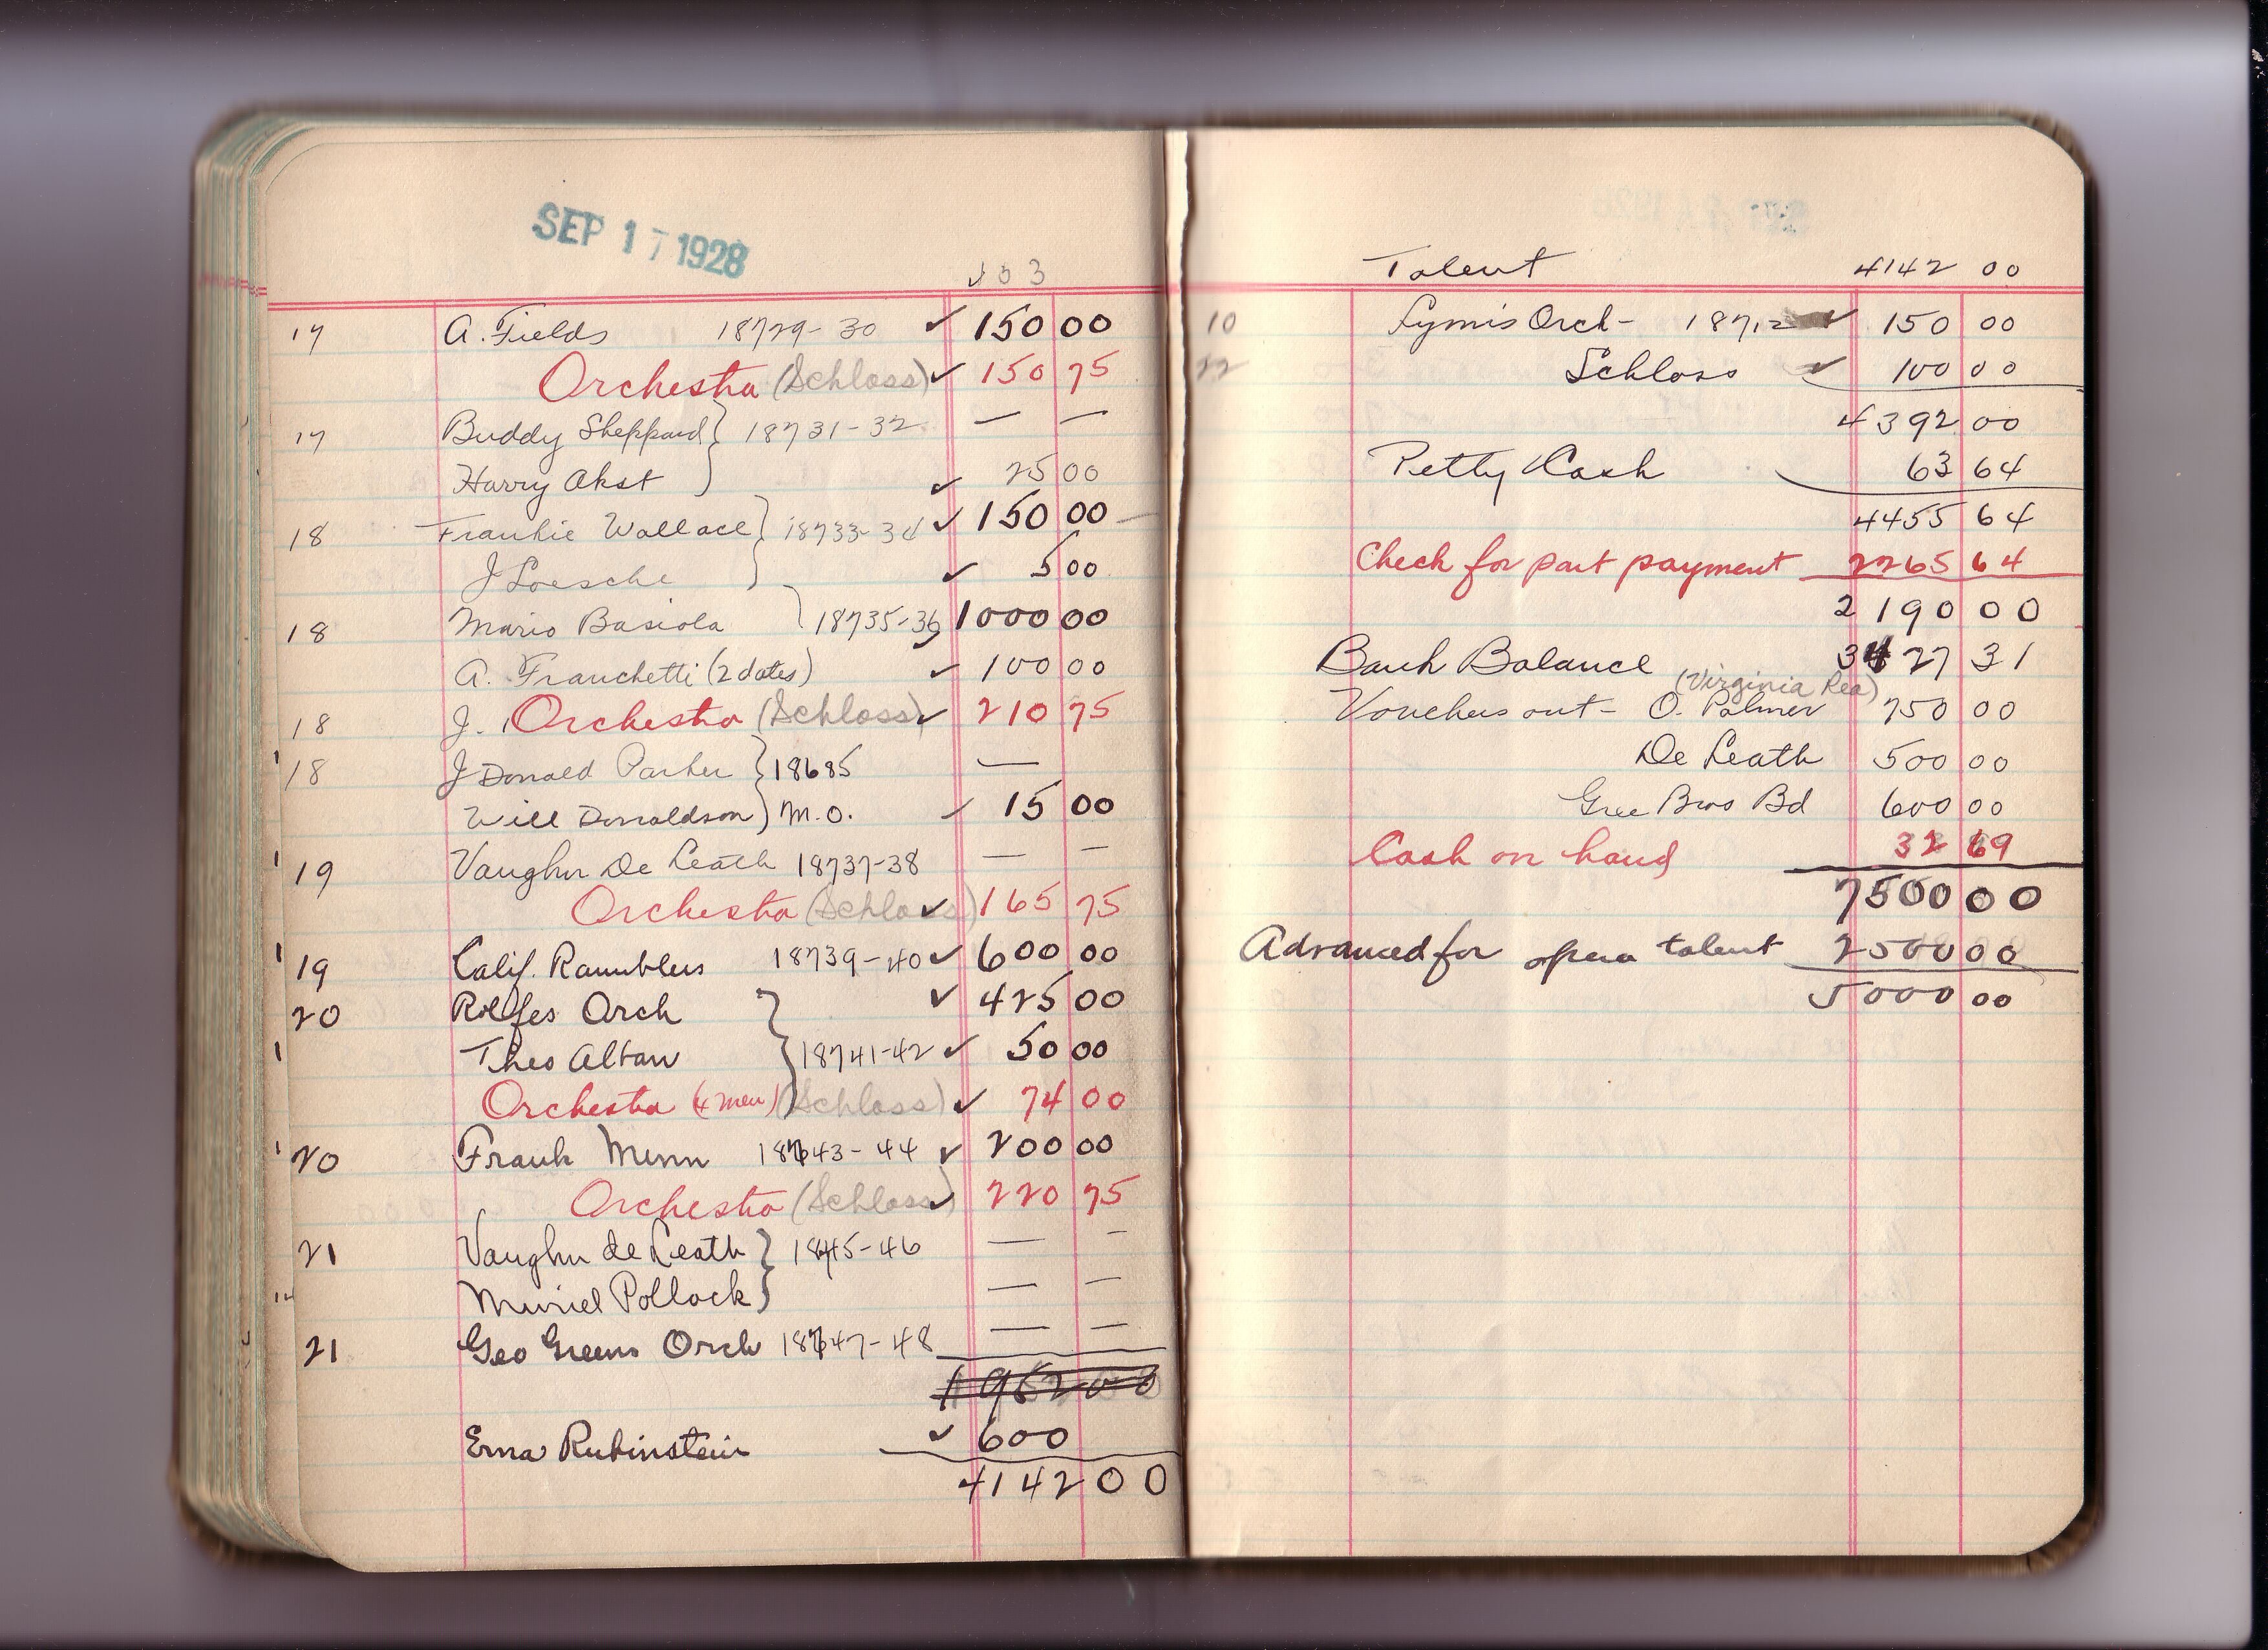 SEP 17 1928
17 A. Fields 18729-30 ✓ 150 00
Orchestra (Schloss) ✓ 150 75
17 Buddy Sheppard } 18731-32 — —
Harry Akst ✓ 25 00
18 Frankie Wallace } 18733-34 ✓ 150 00
J Loesche ✓ 5 00
18 Mario Basiola } 18735-36 1000 00
A. Franchetti (2 dates) ✓ 100 00
18 J. Orchestra (Schloss) ✓ 210 75
18 J Donald Parker } 18685 —
Will Donaldson } M.O. ✓ 15 00
19 Vaughn De Leath 18737-38 — —
Orchestra (Schloss) ✓ 165 75
19 Calif. Ramblers 18739-40 ✓ 600 00
20 Rolfes Orch ✓ 425 00
Theo Alban } 18741-42 ✓ 50 00
Orchestra (4 men) (Schloss) ✓ 74 00
20 Frank Munn 18743-44 ✓ 200 00
Orchestra (Schloss) ✓ 220 75
21 Vaughn de Leath } 1845-46 — —
Muriel Pollock } — —
21 Geo Greens Orch 18747-48 — —
Erna Rubinstein ✓ 600
4142 00
Talent 4142 00
10 Orch - 18712 ✓ 150 00
22 Schloss ✓ 100 00
4392 00
Petty Cash 63 64
4455 64
Check for part payment 2265 64
2190 00
Bank Balance 3427 31
(Virginia Rea)
Vouchers out - O. Palmer 750 00
De Leath 500 00
Gree Bros Bd 600 00
Cash on hand 32 69
7500 00
Advanced for opera talent 2500 00
5000 00